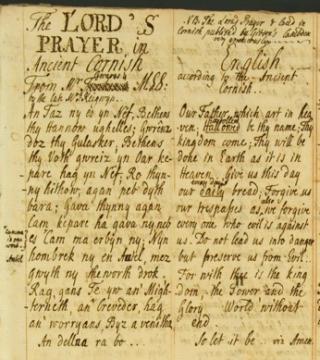 The LORD'S
PRAYER, in
Ancient Cornish
From Mr MSS:
by the late Mr Keigwyn.
An Taz ny es yn Nef, Bethens
thy hannow ughelles; gwrenz
doz thy Gulasker, Bethens
thy Voth gwreiz yn Oar ke-
pare hag yn Nef. Ro thyn-
ny hithow, agan peb dyth
bara; gava thynny agan
cam kepare ha gava ny neb
es Cam ma erbyn ny; Nyn
hombrek ny en Antel, mez
gwyth ny therworth drok.
Rag gans Te yw an Migh-
terneth, an Creveder, hag
an worryans Byz a venitha
An dellna ra bo...
NB. The Lord's Prayer & Creed in
Cornish published by Gibson's Cambden
very
English
according to the Ancient
Cornish.
Our Father, which art in hea-
ven, Hallowed be thy name; Thy
kingdom come; Thy will be
done in Earth as it is in
Heaven. Give us this day
every day's
our daily bread; Forgive us
our trespasses as we forgive
every one who evil is against
us. Do not lead us into danger
but preserve us from Evil.
For with thee is the king
dom, the Power and the
Glory World without
end
So let it be.. via Amen.